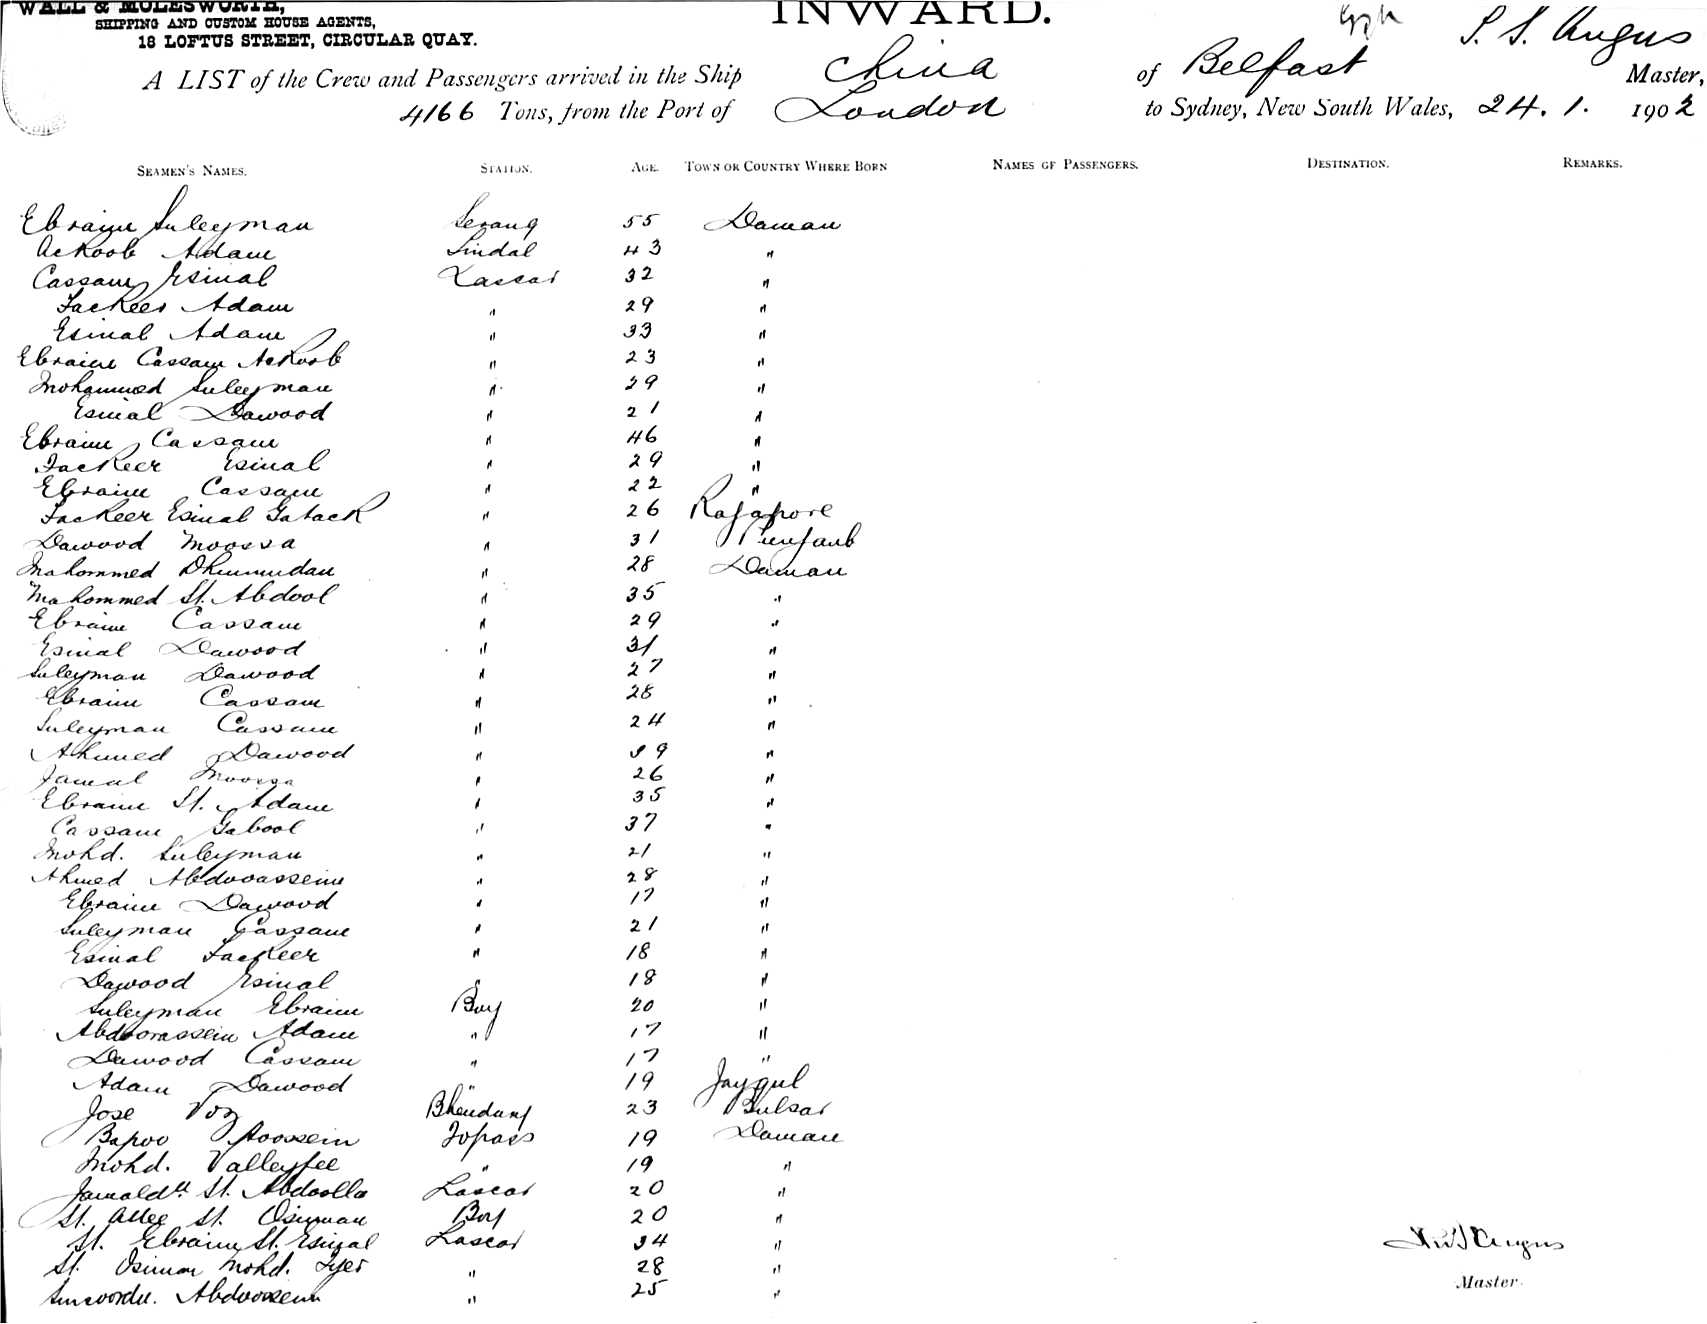 WALL & MULESWORTH,
SHIPPING AND CUSTOM HOUSE AGENTS,
18 LOFTUS STREET, CIRCULAR QUAY.
INWARD.
S. S. Angus
A LIST of the Crew and Passengers arrived in the Ship China of Belfast Master,
4166 Tons, from the Port of London to Sydney, New South Wales, 24. 1. 1902
SEAMEN'S NAMES. STATION. AGE. TOWN OR COUNTRY WHERE BORN NAMES OF PASSENGERS. DESTINATION. REMARKS.
Ebraim Suleyman Serang 55 Daman
Ackoob Adam Tindal 43 "
Cassam Esinal Lascar 32 "
Fackeer Adam " 29 "
Esinal Adam " 33 "
Ebraim Cassam Ackoob " 23 "
Mohammed Suleyman " 29 "
Esinal Dawood " 21 "
Ebraim Cassam " 46 "
Fackeer Esinal " 29 "
Ebraim Cassam " 22 "
Fackeer Esinal Gatack " 26 Rajapore
Dawood Moossa " 31 Punjaub
Mahommed " 28 Daman
Mahommed St. Abdool " 35 "
Ebraim Cassam " 29 "
Esinal Dawood " 31 "
Suleyman Dawood " 27 "
Ebraim Cassam " 28 "
Suleyman Cassam " 24 "
Ahmed Dawood " 39 "
Jamal Moossa " 26 "
Ebraim St. Adam " 35 "
Cassam Gabool " 37 "
Mohd. Suleyman " 21 "
Ahmed " 28 "
Ebraim Dawood " 17 "
Suleyman Cassam " 21 "
Esinal Fackeer " 18 "
Dawood Esinal " 18 "
Suleyman Ebraim Boy 20 "
Abdoorassein Adam " 17 "
Dawood Cassam " 17 "
Adam Dawood " 19
Jose Voz 23 Bulsar
Bapoo Hoossein Topass 19 Daman
Mohd. Valleyjee " 19 "
St. Abdoolla Lascar 20 "
St. Allee St. Osuman Boy 20 "
St. Ebraim St. Lascar 34 "
St. Osuman Mohd. " 28 "
" 25 "
Angus
Master.